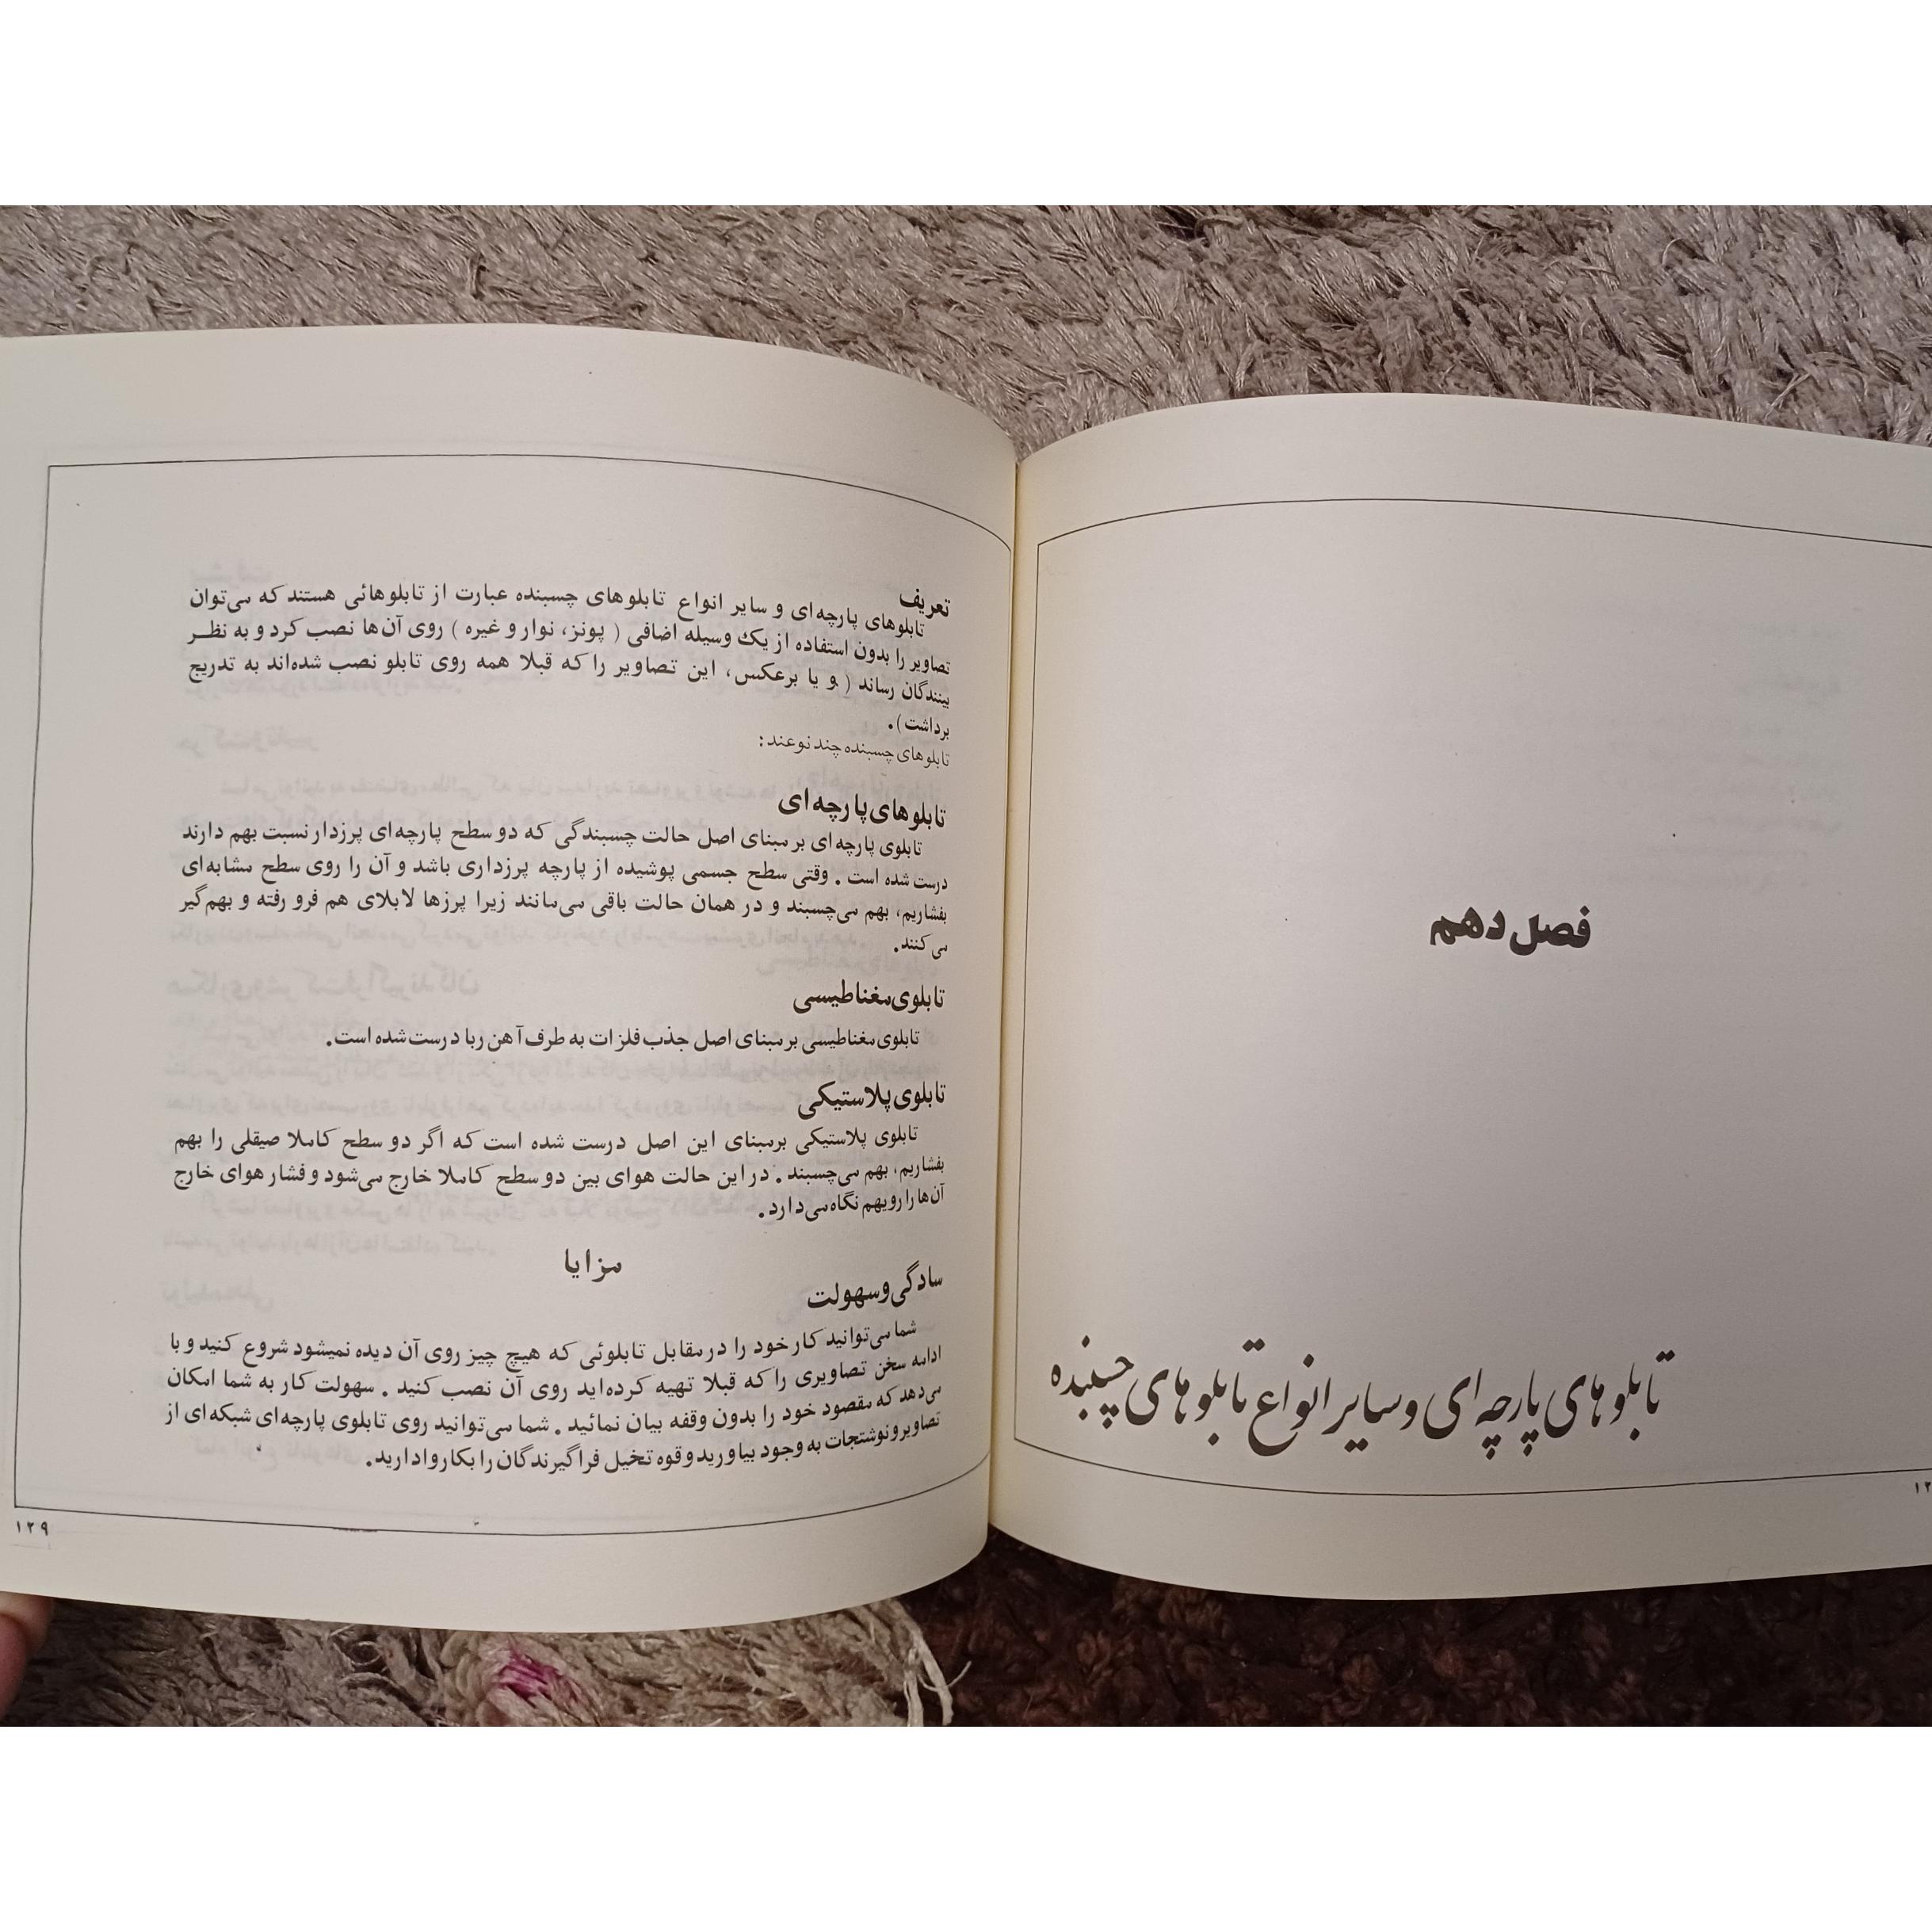 فصل دهم
تابلوهای پارچه‌ای و سایر انواع تابلوهای چسبنده
تعریف
تابلوهای پارچه‌ای و سایر انواع تابلوهای چسبنده عبارت از تابلوهائی هستند که می‌توان
تصاویر را بدون استفاده از یک وسیله اضافی ( پونز، نوار و غیره ) روی آن‌ها نصب کرد و به نظر
بینندگان رساند ( و یا برعکس، این تصاویر را که قبلا همه روی تابلو نصب شده‌اند به تدریج
برداشت).
تابلوهای چسبنده چند نوعند:
تابلوهای پارچه‌ای
تابلوی پارچه‌ای بر مبنای اصل حالت چسبندگی که دو سطح پارچه‌ای پرزدار نسبت بهم دارند
درست شده است . وقتی سطح جسمی پوشیده از پارچه پرزداری باشد و آن را روی سطح مشابه‌ای
بفشاریم، بهم می‌چسبند و در همان حالت باقی می‌مانند زیرا پرزها لابلای هم فرو رفته و بهم‌گیر
می‌کنند.
تابلوی مغناطیسی
تابلوی مغناطیسی بر مبنای اصل جذب فلزات به طرف آهن ربا درست شده است.
تابلوی پلاستیکی
تابلوی پلاستیکی برمبنای این اصل درست شده است که اگر دو سطح کاملا صیقلی را بهم
بفشاریم، بهم می‌چسبند . در این حالت هوای بین دو سطح کاملا خارج می‌شود و فشار هوای خارج
آن‌ها را رویهم نگاه می‌دارد.
مزایا
سادگی و سهولت
شما می‌توانید کار خود را در مقابل تابلوئی که هیچ چیز روی آن دیده نمیشود شروع کنید و با
ادامه سخن تصاویری را که قبلا تهیه کرده‌اید روی آن نصب کنید . سهولت کار به شما امکان
می‌دهد که مقصود خود را بدون وقفه بیان نمائید . شما می‌توانید روی تابلوی پارچه‌ای شبکه‌ای از
تصاویر و نوشتجات به وجود بیاورید و قوه تخیل فراگیرندگان را بکار وادارید.
۱۲۹